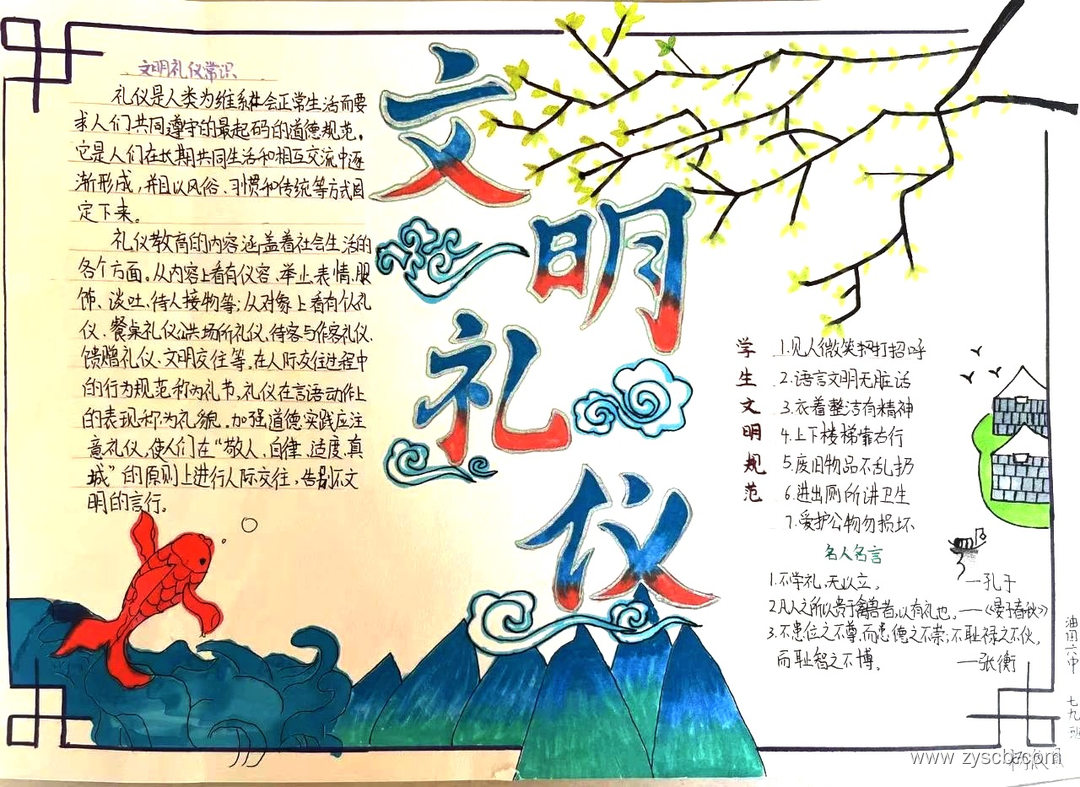 文明礼仪常识
礼仪是人类为维系社会正常生活而要
求人们共同遵守的最起码的道德规范，
它是人们在长期共同生活和相互交流中逐
渐形成，并且以风俗、习惯和传统等方式固
定下来。
礼仪教育的内容涵盖着社会生活的
各个方面。从内容上看有仪容、举止、表情、服
饰、谈吐、待人接物等；从对象上看有个人礼
仪、餐桌礼仪公共场所礼仪、待客与作客礼仪、
馈赠礼仪、文明交往等。在人际交往过程中
的行为规范称为礼节，礼仪在言语动作上
的表现称为礼貌。加强道德实践应注
意礼仪，使人们在“敬人、自律、适度、真
城”的原则上进行人际交往，告别不文
明的言行。
文明礼仪
学生文明规范
1.见人微笑把打招呼
2.语言文明无脏话
3.衣着整洁有精神
4.上下楼梯靠右行
5.废旧物品不乱扔
6.进出厕所讲卫生
7.爱护公物勿损坏
名人名言
1.不学礼，无以立。 —孔子
2.凡人之所以贵于禽兽者，以有礼也。——《晏子春秋》
3.不患位之不尊，而患德之不崇；不耻禄之不伙，
而耻智之不博。 —张衡
油田六中
七九班
www.zyscb.com